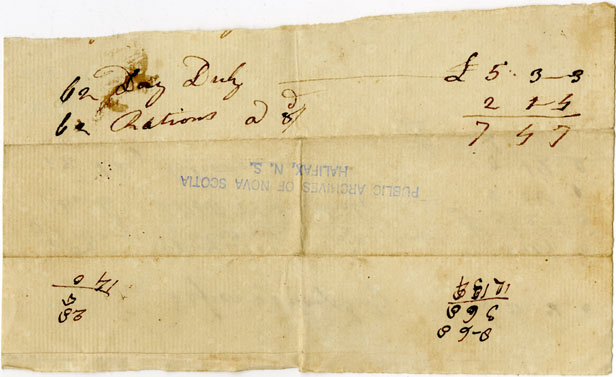 62 Day Duty £ 5 . 3 - 3
62 Rations a 8d/ 2 1-4
7 4 7
PUBLIC ARCHIVES OF NOVA SCOTIA
HALIFAX, N. S.
28
5
140
8 6-8
3 6 8